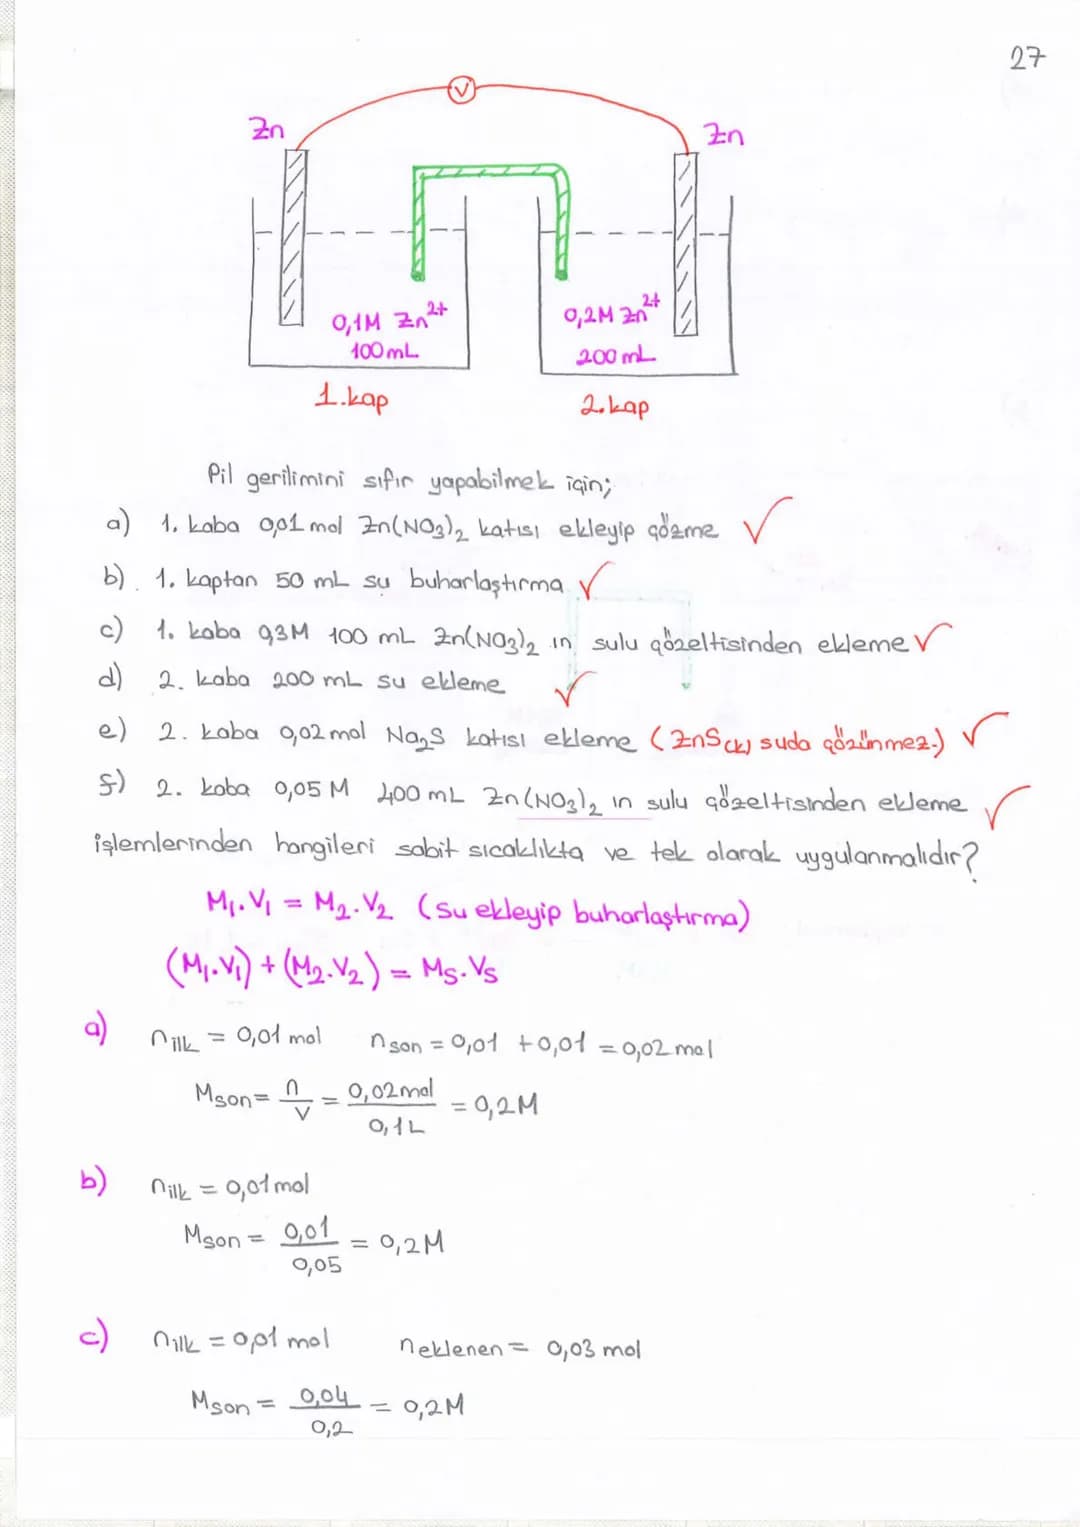 27
V
Zn
Zn
0,1M Zn²⁺
100 mL
0,2M Zn²⁺
200 mL
1.kap
2.kap
Pil gerilimini sıfır yapabilmek için;
a) 1. kaba 0,01 mol Zn(NO₃)₂ katısı ekleyip çözme ✓
b). 1. kaptan 50 mL su buharlaştırma ✓
c) 1. kaba 0,3M 100 mL Zn(NO₃)₂ ın sulu çözeltisinden ekleme ✓
d) 2. kaba 200 mL su ekleme ✓
e) 2. kaba 0,02 mol Na₂S katısı ekleme (ZnS(k) suda çözünmez.) ✓
f) 2. kaba 0,05 M 400 mL Zn(NO₃)₂ ın sulu çözeltisinden ekleme ✓
işlemlerinden hangileri sabit sıcaklıkta ve tek olarak uygulanmalıdır?
M₁.V₁ = M₂.V₂ (Su ekleyip buharlaştırma)
(M₁.V₁) + (M₂.V₂) = Ms.Vs
a) nilk = 0,01 mol nson = 0,01 + 0,01 = 0,02 mol
Mson = n/V = 0,02 mol/0,1L = 0,2M
b) nilk = 0,01 mol
Mson = 0,01/0,05 = 0,2M
c) nilk = 0,01 mol neklenen = 0,03 mol
Mson = 0,04/0,2 = 0,2M